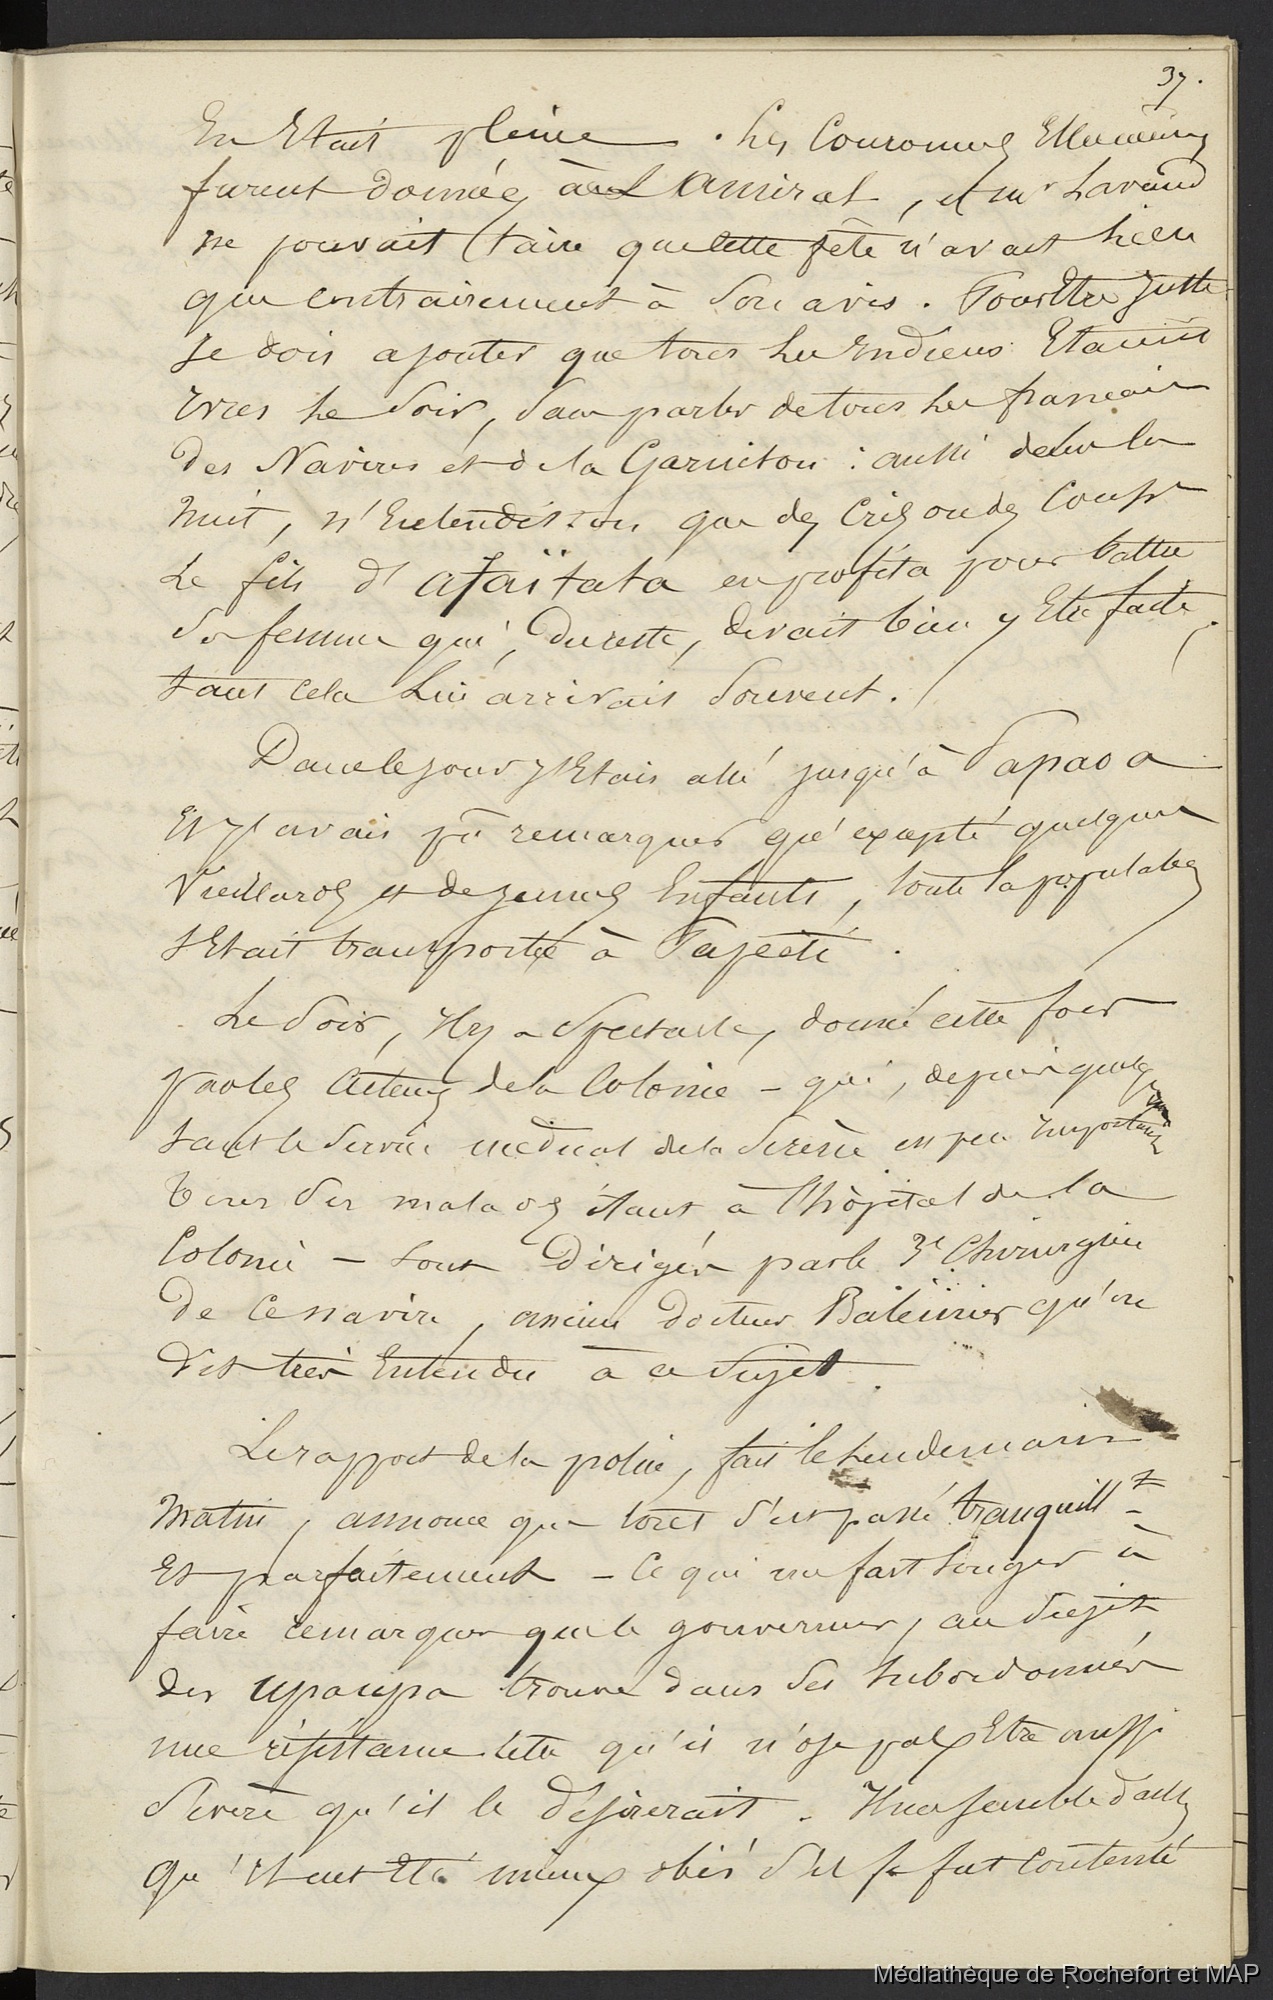 37.
En Etait pleine . Les Couronnes
furent données à L'amiral , et mr Lavaud
ne pouvait taire que cette fête n'avait lieu
que contrairement à son avis . Pour Etre juste
je dois ajouter que tous les Indiens Etaient
ivres le soir , sans parler de tous les francais
des Navires et de la Garnison : aussi de la
Nuit , n'Entendit-on que des Cris ou des Coups
Le fils d'ataïtata en profita pour battre
sa femme qui , du reste , devait bien y Etre faite ,
tant cela Lui arrivait souvent .
Dans le jour j'Etais allé jusqu'à Papaoa
Et j'avais pû remarquer qu'excepté quelques
Vieillards et de jeunes Enfants , toute la populaton
s'Etait transportée à Papeété .
Le soir , il y a Spectacle , donné cette fois
par les acteurs de la Colonie – qui , depuis que
tant le service médical de la Sirène est peu important
tous ses malades étant à l'hôpital de la
Colonie – sont dirigés par le 3e Chirurgien
de ce navire , ancien docteur qu'on
dit très Entendu à ce sujet .
Le rapport de la police , fait le lendemain
Matin , annonce que tout s'est passé tranquillt
Et parfaitement – Ce qui me fait songer à
faire remarquer que le gouverneur , au sujet
des upaupa trouve dans ses subordonnés
une résistance telle qu'il n'ose pas Etre aussi
Sévère qu'il le désirerait . Il me semble d'aill
qu'il eut Eté mieux obéi s'il se fut contenté
Médiathèque de Rochefort et MAP